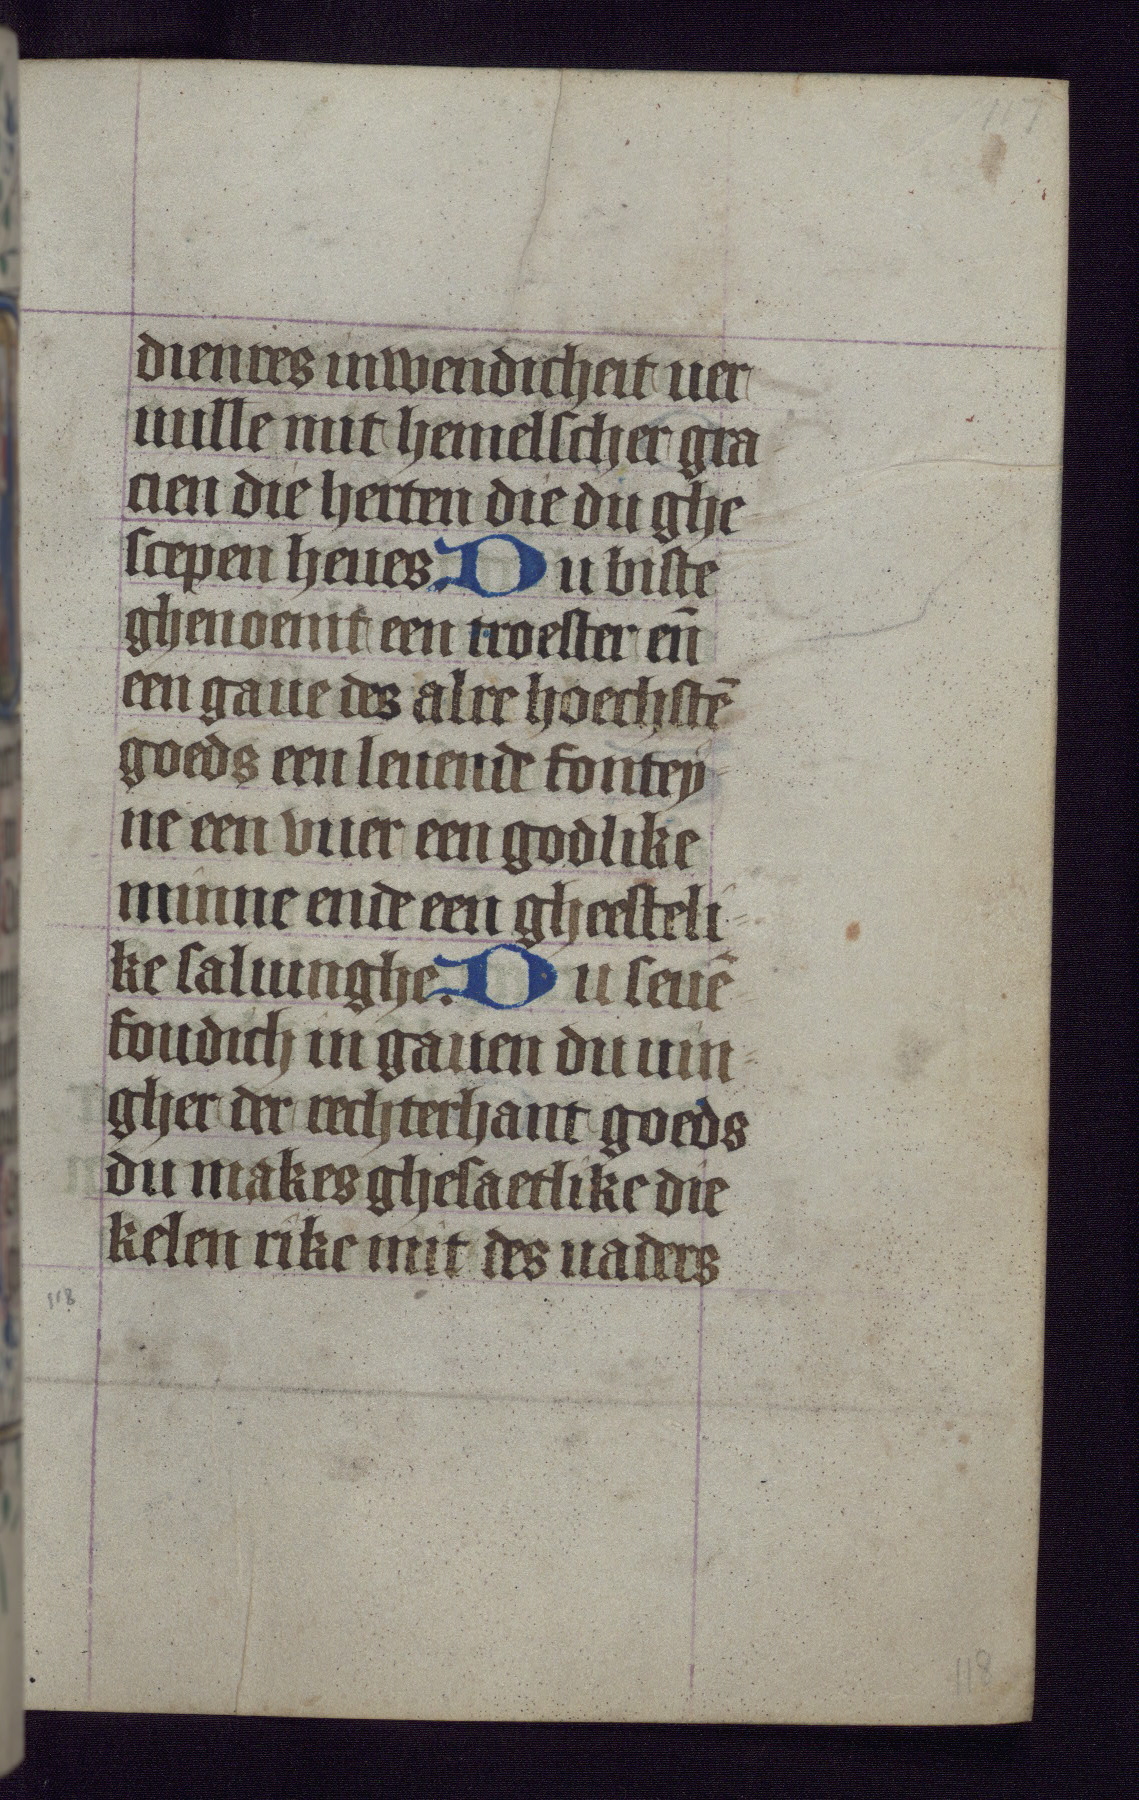 117
dienres inwendicheit uer
uulle mit hemelscher gra
cien die herten die du ghe
scepen heues. Du biste
ghenoemt een troester en̄
een gaue des alre hoechstē
goeds een leuende fontey
ne een vuer een godlike
minne ende een gheesteli
ke saluinghe. Du seuē
foudich in gauen du uin
gher der rechterhant goeds
du makes ghesaetlike die
kelen rike mit des uaders
118
118